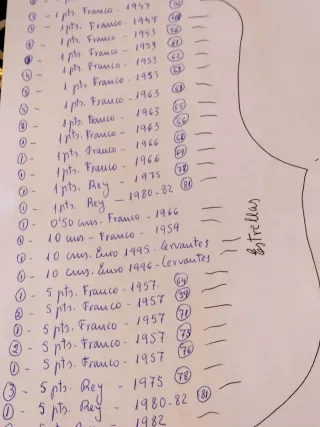 1 pts. Franco - 1947
1 pts. Franco - 1947
1 pts. Franco - 1953 56
1 pts. Franco - 1953 61
1 pts. Franco - 1953 62
1 pts. Franco - 1953 63
1 pts. Franco - 1963
1 pts. Franco - 1963 65
1 pts. Franco - 1963 66
1 - 1 pts. Franco - 1966 68
1 - 1 pts. Franco - 1966 69
1 - 1 pts. Rey - 1975 78
1 - 1 pts. Rey - 1980-82 81
1 - 0'50 cms. Franco - 1966
10 cms - Franco - 1959
1 - 10 cms. Euro 1995 - Cervantes
1 - 10 cms. Euro 1996 - Cervantes
1 - 5 pts. Franco - 1957 64
2 - 5 pts. Franco - 1957 59
1 - 5 pts. Franco - 1957 71
2 - 5 pts. Franco - 1957 73
1 - 5 pts. Franco - 1957 76
3 - 5 pts. Rey - 1975 78
1 - 5 pts. Rey - 1980-82 81
5 pts. Rey - 1982
Estrellas